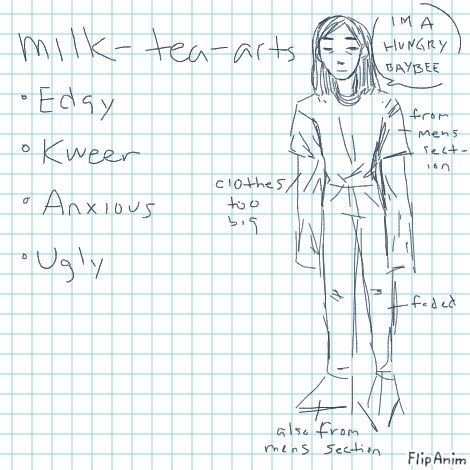 milk-tea-arts
• Edgy
• Kweer
• Anxious
• Ugly
IM A
HUNGRY
BAYBEE
from
mens
sect-
ion
clothes
too
big
faded
also from
mens section
FlipAnim